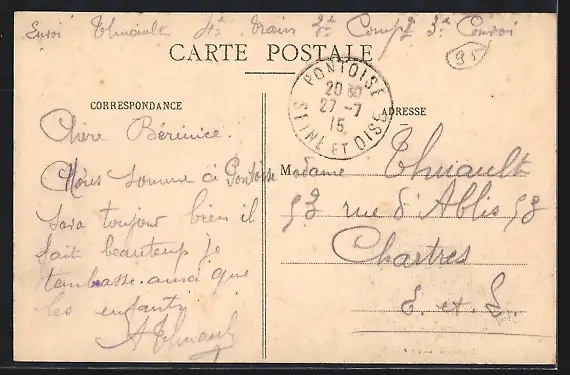 Envoi Thuiault 4e Train 2e Comp 3e Convoi
95
CARTE POSTALE
PONTOISE
20 30
27 -7
15
SEINE ET OISE
CORRESPONDANCE
ADRESSE
Chere Bérénice.
Nous somme à Pontoise
sava toujour bien il
fait beauteup je
tembasse ainsi que
les enfants
AThuiault
Madame Thuiault
53 rue d'Ablis 53
Chartres
E. et L.